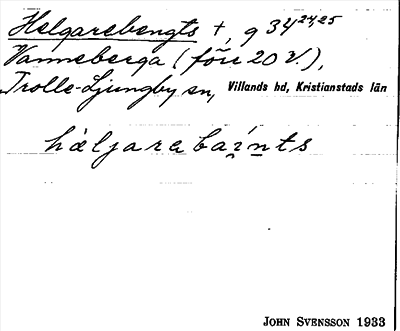 Helgarebengts †, g 34 24,25
Vanneberga (förr 20 V.),
Trolle-Ljungby sn, Villands hd, Kristianstads län
hæljarabai̯n̲ts
JOHN SVENSSON 1933